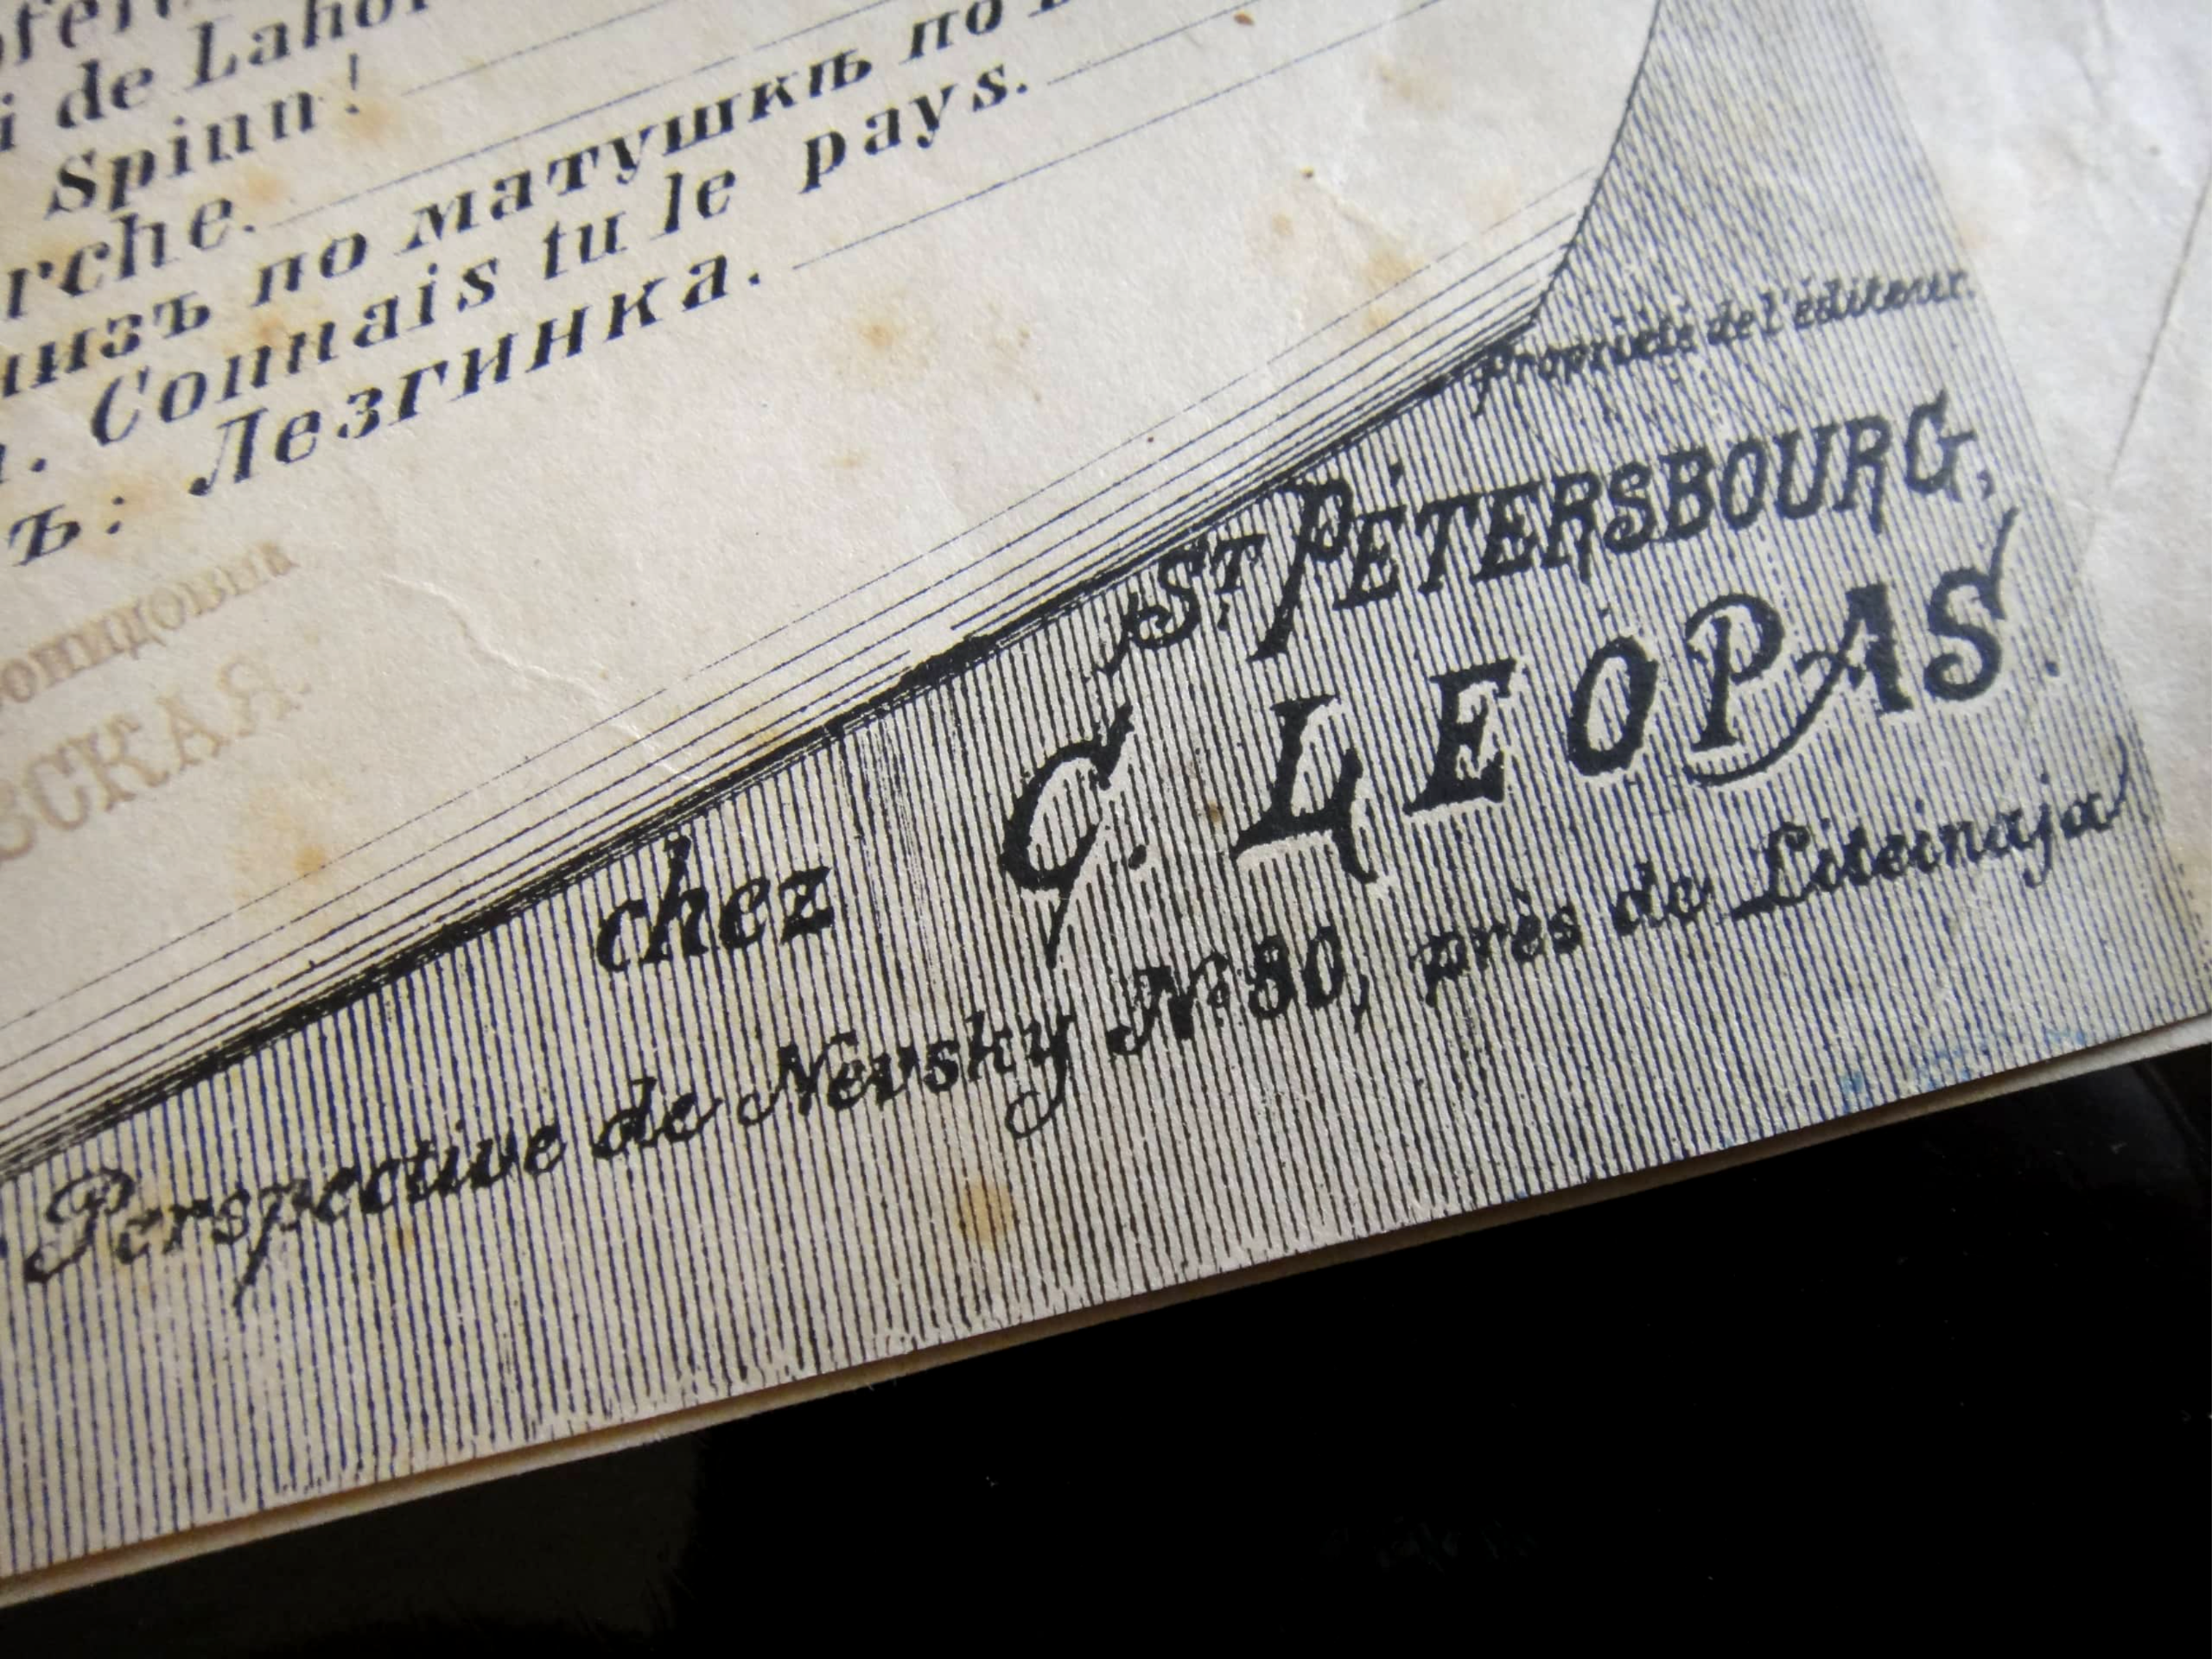 i de Lahor
Spinn!
rche.
низъ по матушкѣ по
Connais tu le pays.
ъ: Лезгинка.
онидовна
ВСКАЯ.
Propriété de l'éditeur.
ST PÉTERSBOURG,
chez C. LEOPAS.
Perspective de Nevsky № 80, près de Liteinaja